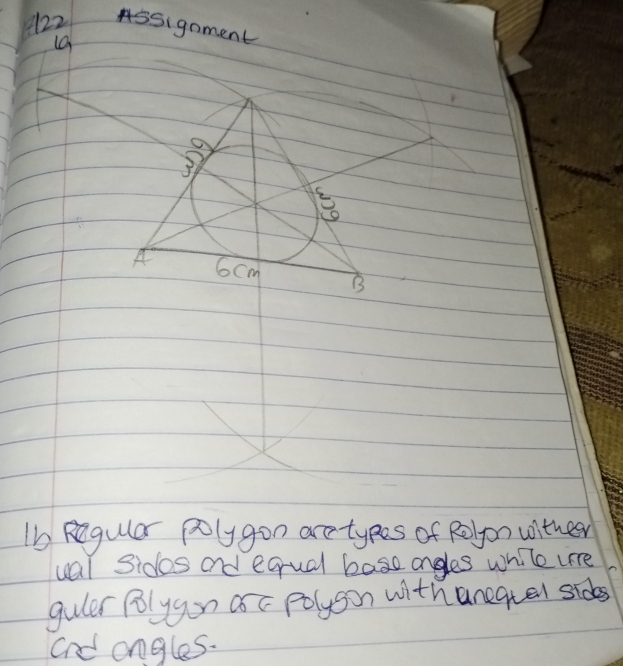 Assignment
1a
6cm
6cm
A
6cm
B
1b Regular polygon are types of Polyon with eq
ual sides and equal base angles while irre
guler Polygon are polygon with unequal sides
and angles.